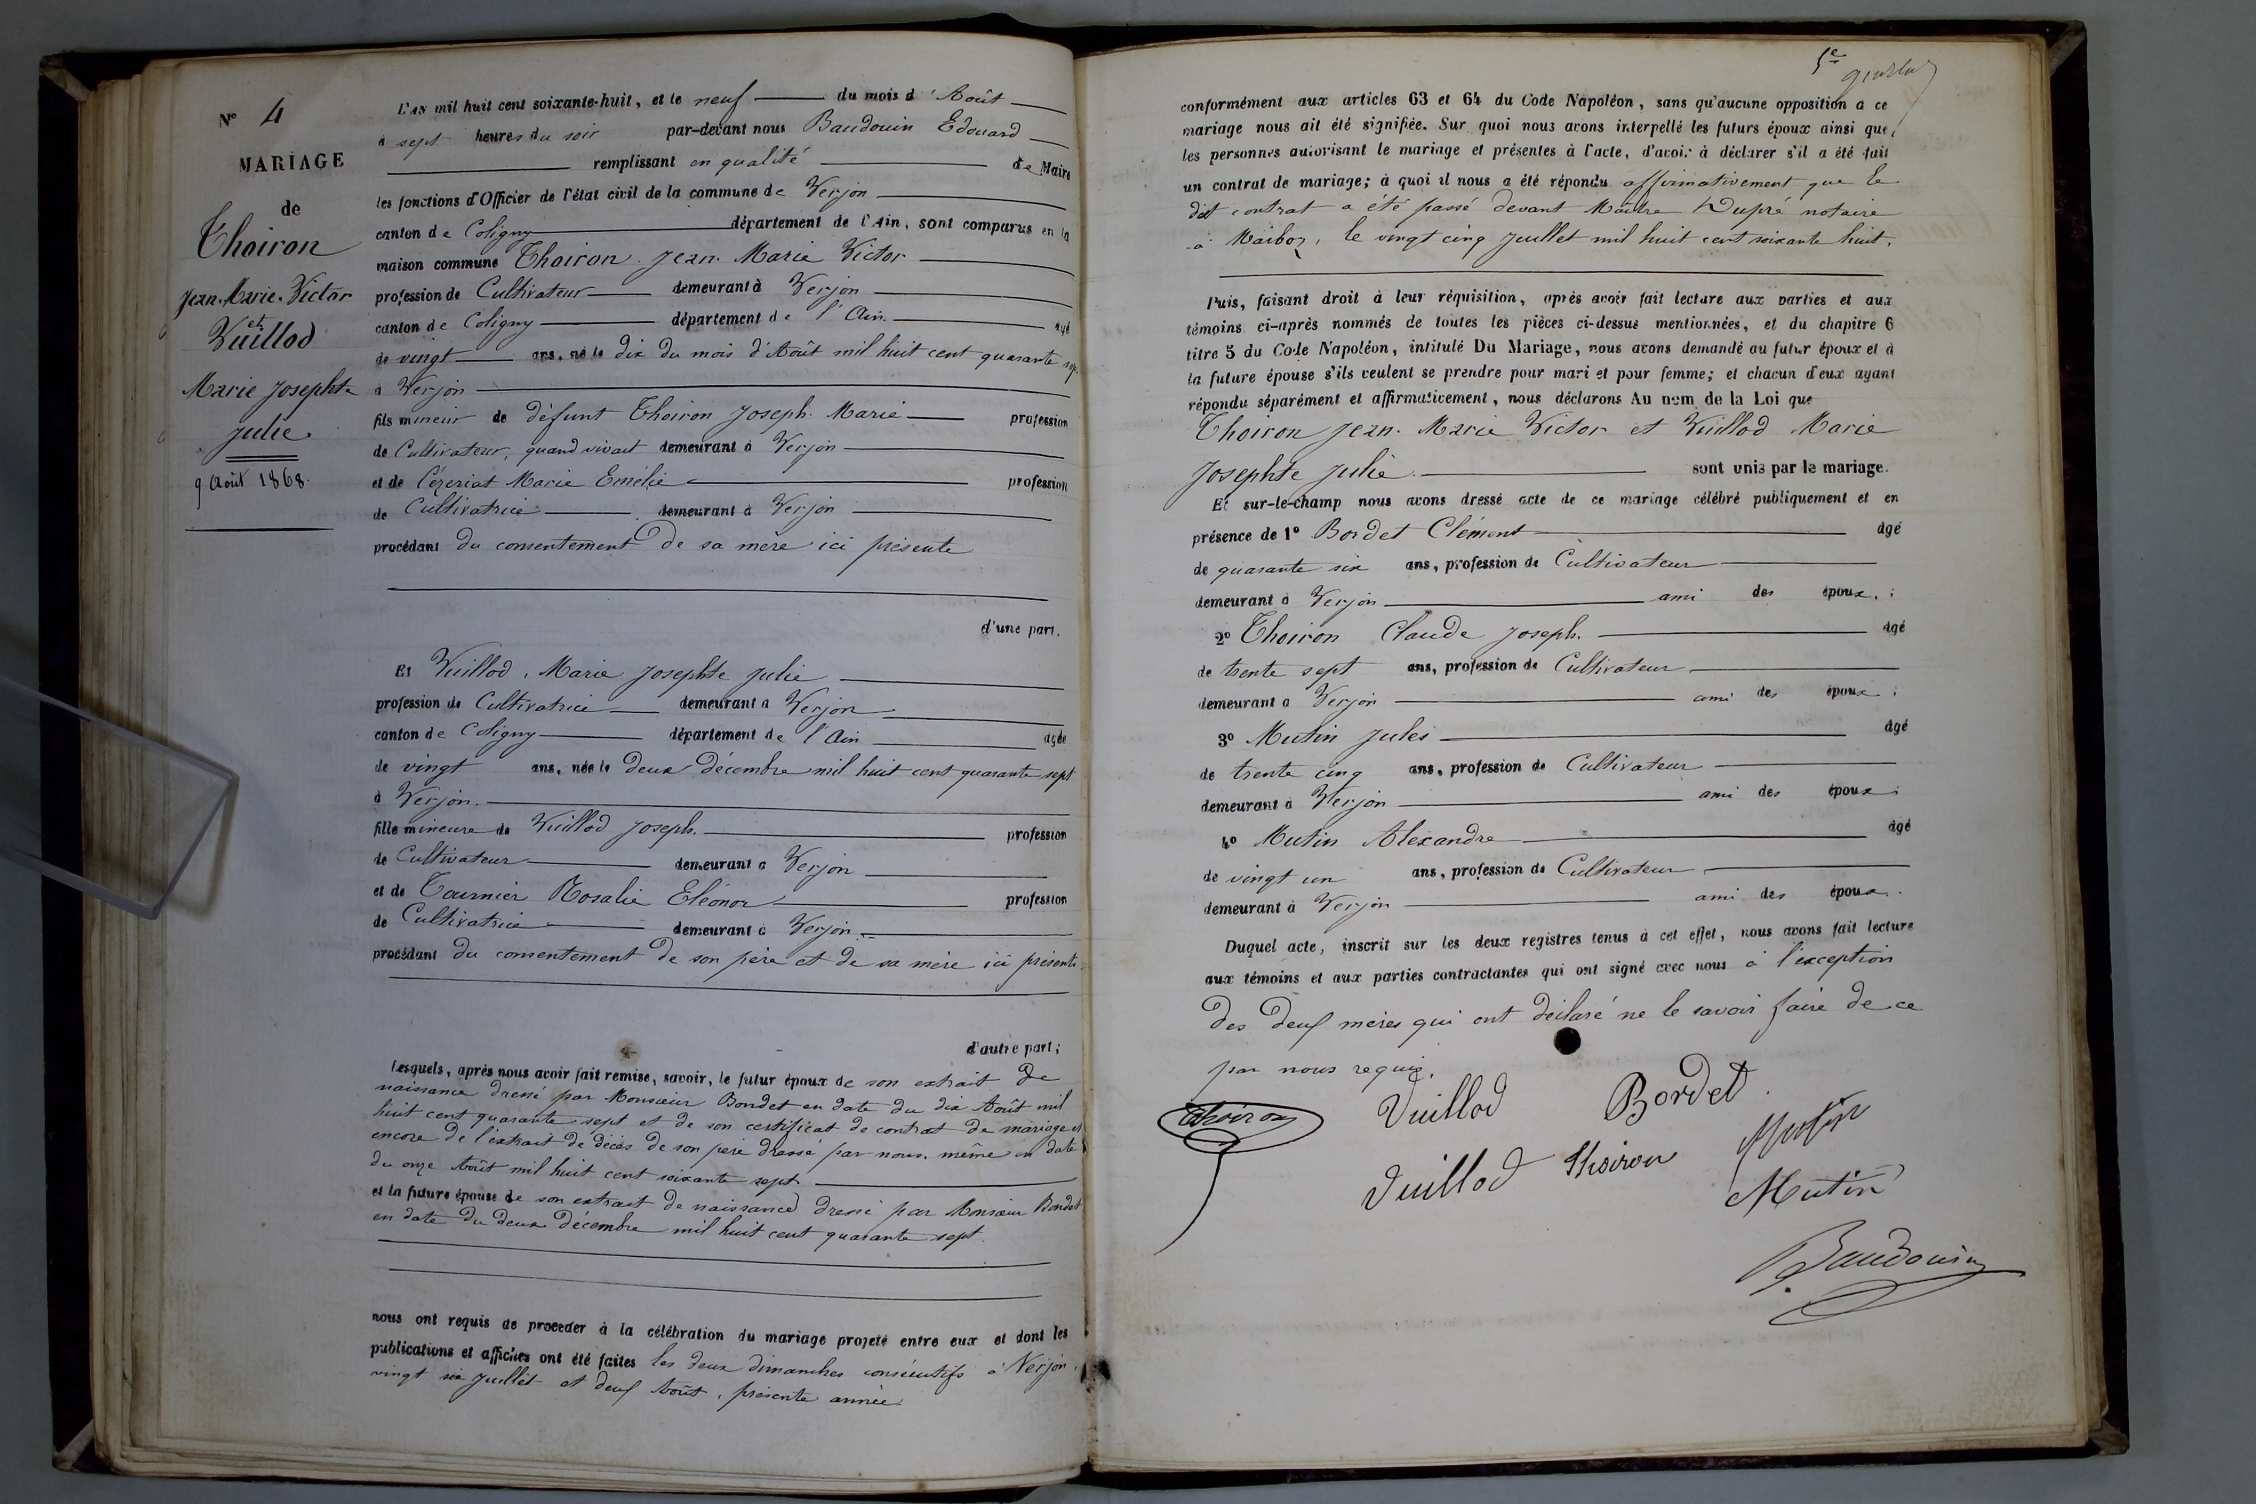 N° 4
MARIAGE
de
Thoiron
Jean-Marie-Victor
et
Vuillod
Marie Josephte
Julie
9 Août 1868.
L'AN mil huit cent soixante-huit, et le neuf du mois d'Août
à sept heures du soir par-devant nous Baudouin Edouard
remplissant en qualité de Maire
les fonctions d'Officier de l'état civil de la commune de Verjon
canton de Coligny département de l'Ain, sont comparus en la
maison commune Thoiron Jean Marie Victor
profession de Cultivateur demeurant à Verjon
canton de Coligny département de l'Ain âgé
de vingt ans, né le dix du mois d'Août mil huit cent quarante sept
à Verjon
fils mineur de défunt Thoiron Joseph Marie profession
de Cultivateur, quand vivait demeurant à Verjon
et de Cézeriat Marie Emélie profession
de Cultivatrice demeurant à Verjon
procédant du consentement de sa mère ici présente
d'une part.
Et Vuillod, Marie Josephte Julie
profession de Cultivatrice demeurant à Verjon
canton de Coligny département de l'Ain âgée
de vingt ans, née le deux décembre mil huit cent quarante sept
à Verjon.
fille mineure de Vuillod Joseph. profession
de Cultivateur demeurant à Verjon
et de Tournier Rosalie Eléonor profession
de Cultivatrice demeurant à Verjon
procédant du consentement de son père et de sa mère ici présents
d'autre part;
Lesquels, après nous avoir fait remise, savoir, le futur époux de son extrait de
naissance dressé par Monsieur Bondet en date du dix Août mil
huit cent quarante sept et de son certificat de contrat de mariage et
encore de l'extrait de décès de son père dressé par nous même en date
du onze Août mil huit cent soixante sept
et la future épouse de son extrait de naissance dressé par Monsieur Bondet
en date du deux Décembre mil huit cent quarante sept.
nous ont requis de procéder à la célébration du mariage projeté entre eux et dont les
publications et affiches ont été faites les deux dimanches consécutifs à Verjon
vingt six Juillet et deux Août, présente année.
5e
conformément aux articles 63 et 64 du Code Napoléon, sans qu'aucune opposition à ce
mariage nous ait été signifiée. Sur quoi nous avons interpellé les futurs époux ainsi que
les personnes autorisant le mariage et présentes à l'acte, d'avoir à déclarer s'il a été fait
un contrat de mariage; à quoi il nous a été répondu affirmativement que le
dit contrat a été passé devant Maître Dupré notaire
à Marboz, le vingt cinq Juillet mil huit cent soixante huit.
Puis, faisant droit à leur réquisition, après avoir fait lecture aux parties et aux
témoins ci-après nommés de toutes les pièces ci-dessus mentionnées, et du chapitre 6
titre 5 du Code Napoléon, intitulé Du Mariage, nous avons demandé au futur époux et à
la future épouse s'ils veulent se prendre pour mari et pour femme; et chacun d'eux ayant
répondu séparément et affirmativement, nous déclarons Au nom de la Loi que
Thoiron Jean Marie Victor et Vuillod Marie
Josephte Julie sont unis par le mariage.
Et sur-le-champ nous avons dressé acte de ce mariage célébré publiquement et en
présence de 1° Bordet Clément âgé
de quarante six ans, profession de Cultivateur
demeurant à Verjon ami des époux.;
2° Thoiron Claude Joseph. âgé
de trente sept ans, profession de Cultivateur
demeurant à Verjon ami des époux;
3° Mutin Jules âgé
de trente cinq ans, profession de Cultivateur
demeurant à Verjon ami des époux;
4° Mutin Alexandre âgé
de vingt un ans, profession de Cultivateur
demeurant à Verjon ami des époux.
Duquel acte, inscrit sur les deux registres tenus à cet effet, nous avons fait lecture
aux témoins et aux parties contractantes qui ont signé avec nous à l'exception
des deux mères qui ont déclaré ne le savoir faire de ce
par nous requis.
Thoiron Vuillod Bordet
Mutin
Vuillod Thoiron
Mutin
Baudouin